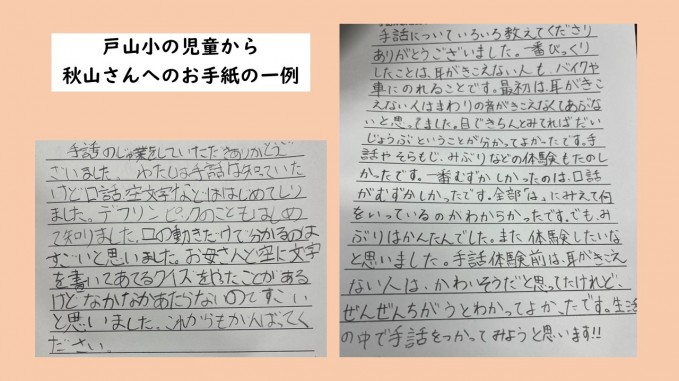 戸山小の児童から
秋山さんへのお手紙の一例
手話のじゅ業をしていただきありがとうご
ざいました。わたしは手話は知っていた
けど口話、空文字などははじめてしり
ました。デフリンピックのこともはじめ
て知りました。口の動きだけで分かるのは
すごいと思いました。お母さんと空に文字
を書いてあてるクイズをやったことがある
けどなかなかあたらないのですごい
と思いました。これからもがんばってく
ださい。
手話についていろいろ教えてくださり
ありがとうございました。一番びっくり
したことは、耳がきこえない人も、バイクや
車にのれることです。最初は、耳がきこ
えない人はまわりの音がきこえなくてあぶな
いと思ってました。目できちんとみてればだい
じょうぶということが分かってよかったです。手
話やそらもじ、みぶりなどの体験もたのし
かったです。一番むずかしかったのは、口話
がむずかしかったです。全部「は」にみえて何
をいっているのかわからかったです。でも、み
ぶりはかんたんでした。また体験したいな
と思いました。手話体験前は、耳がきこえ
ない人は、かわいそうだと思ってたけれど、
ぜんぜんちがうとわかってよかったです。生活
の中で手話をつかってみようと思います!!